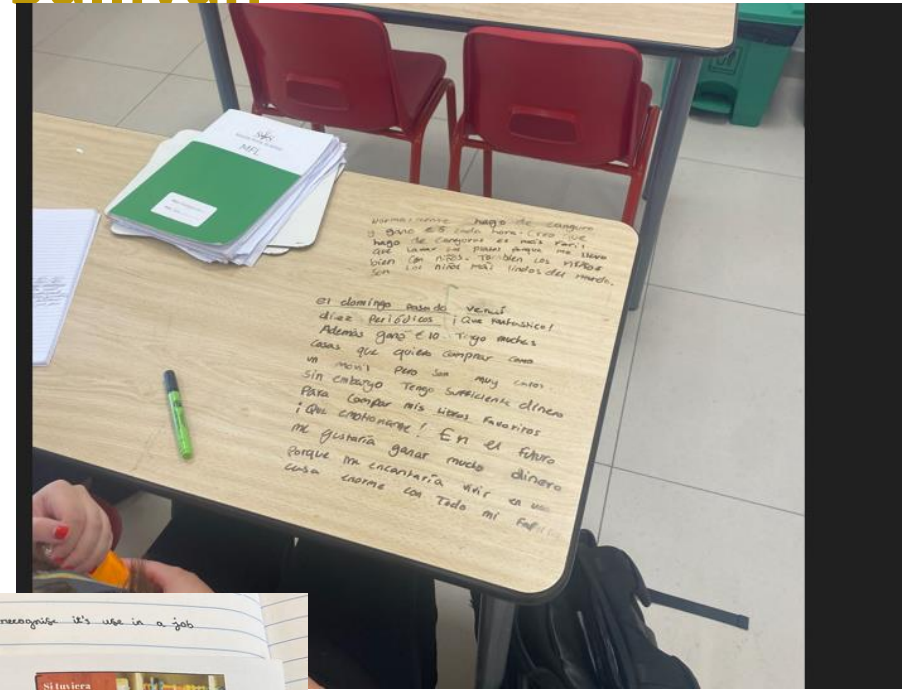 MFL
Normalmente hago de canguro
y gano €5 cada hora. Creo que
hago de canguros es más fácil
que lavar los platos porque me llevo
bien con niños. También los niños
son los niños más lindos del mundo.
El domingo pasado vendí
diez periódicos ¡Que fantastico!
Además gané €10. Tengo muchas
cosas que quiero comprar como
un movil pero son muy caros.
sin embargo Tengo sufficiente dinero
Para comprar mis libros favoritos
¡Que emotionante! En el futuro
me gustaría ganar mucho dinero
porque me encantaría vivir en una
casa enorme con Todo mi
recognise it's use in a job
Si tuviera